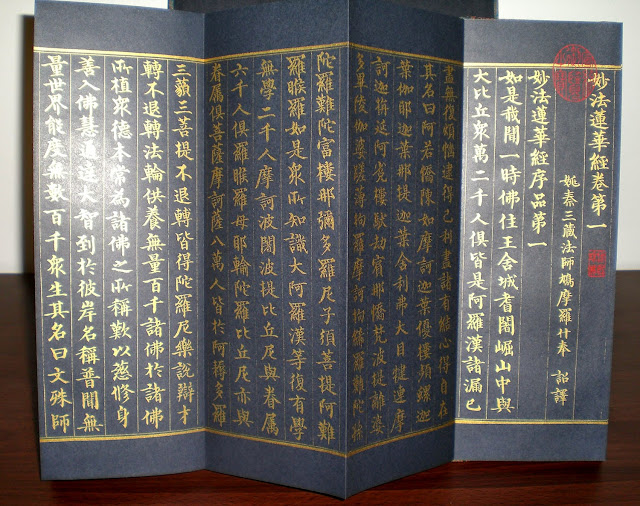 妙法蓮華經卷第一
姚秦三藏法師鳩摩羅什奉 詔譯
妙法蓮華經序品第一
如是我聞一時佛住王舍城耆闍崛山中與
大比丘眾萬二千人俱皆是阿羅漢諸漏已
盡無復煩惱逮得己利盡諸有結心得自在
其名曰阿若憍陳如摩訶迦葉優樓頻螺迦
葉伽耶迦葉那提迦葉舍利弗大目揵連摩
訶迦旃延阿㝹樓馱劫賓那憍梵波提離婆
多畢陵伽婆蹉薄拘羅摩訶拘絺羅難陀孫
陀羅難陀富樓那彌多羅尼子須菩提阿難
羅睺羅如是眾所知識大阿羅漢等復有學
無學二千人摩訶波闍波提比丘尼與眷屬
六千人俱羅睺羅母耶輸陀羅比丘尼亦與
眷屬俱菩薩摩訶薩八萬人皆於阿耨多羅
三藐三菩提不退轉皆得陀羅尼樂說辯才
轉不退轉法輪供養無量百千諸佛於諸佛
所植眾德本常為諸佛之所稱歎以慈修身
善入佛慧通達大智到於彼岸名稱普聞無
量世界能度無數百千眾生其名曰文殊師